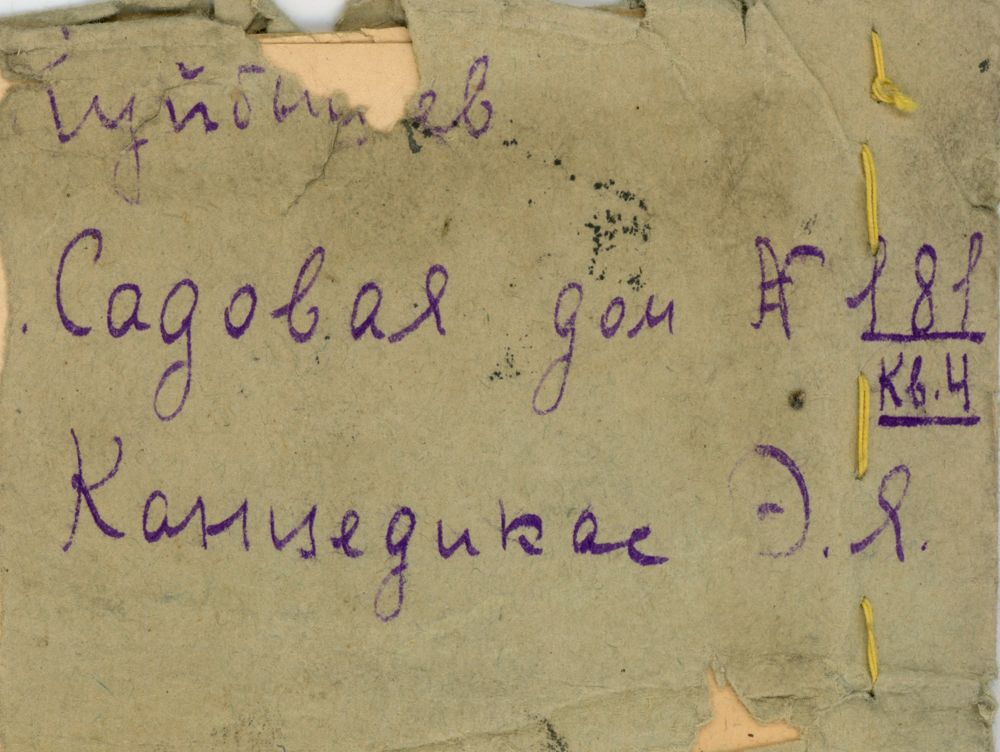 Куйбышев
Садовая дом № 181
кв. 4
Канцедикас Э. Я.